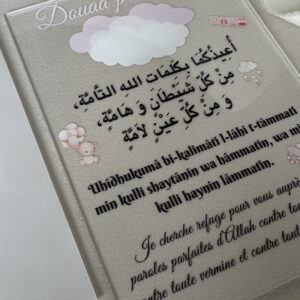 Douaa p
أُعِيذُكُمَا بِكَلِمَاتِ اللهِ التَّامَّةِ،
مِنْ كُلِّ شَيْطَانٍ وَ هَامَّةٍ،
وَ مِنْ كُلِّ عَيْنٍ لاَمَّةٍ
Uhîdhukumâ bi-kalimâti l-lâhi t-tâmmati
min kulli shaytânin wa hâmmatin, wa m
kulli haynin lâmmatin.
Je cherche refuge pour vous auprè
paroles parfaites d'Allah contre tou
contre toute vermine et contre tout